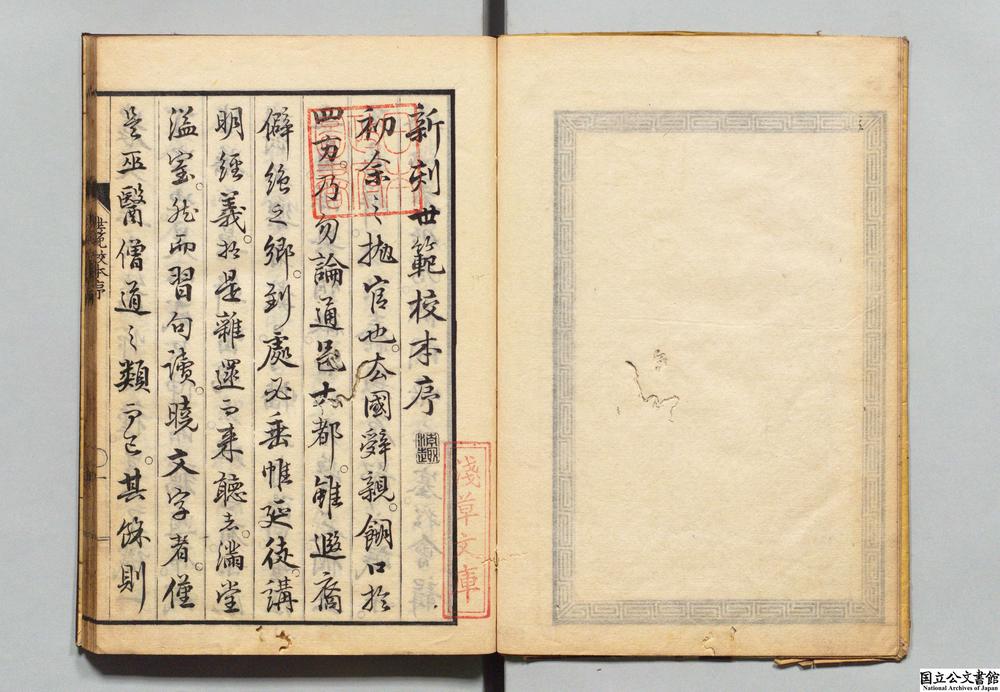 新刻世範校本序
初余之拋官也。去國辭親。餬口於
四方。乃勿論通邑大都。雖遐裔
僻絕之鄉。到處必垂帷延徒。講
明經義。於是雜遝而來聽者。滿堂
溢室。然而習句讀。曉文字者。僅
是巫醫僧道之類而已。其餘則
世範校本序
淺草文庫
国立公文書館
National Archives of Japan